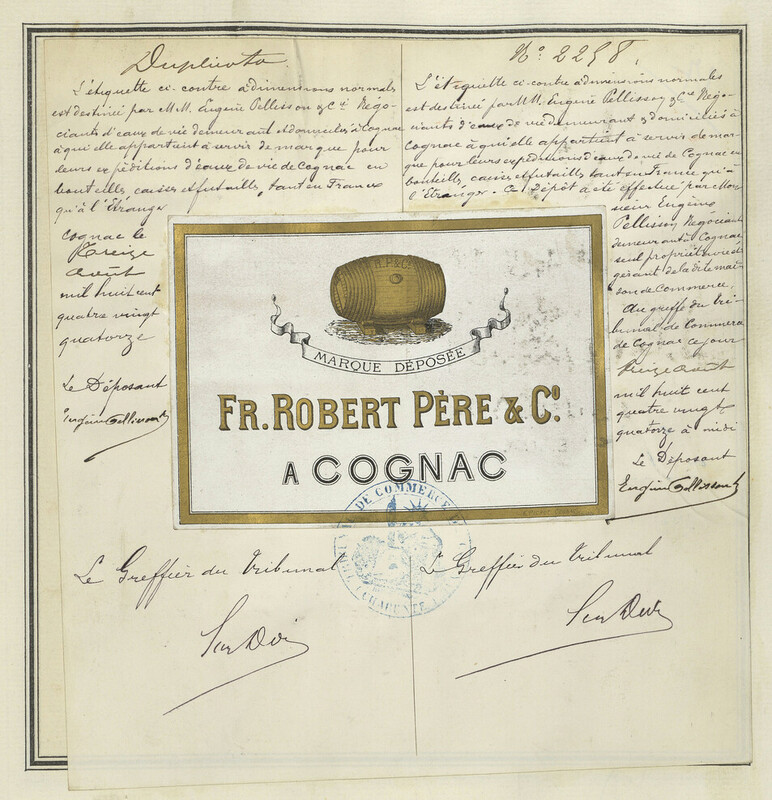 Duplicata
L'étiquette ci-contre a dimensions normales
est destinée par M.M. Eugène Pellisson & Cie Négo-
ciants d'eaux de vie demeurant et domiciliés à Cognac
à qui elle appartient à servir de marque pour
leurs expéditions d'eaux de vie de Cognac en
bouteilles, caisses et futailles, tant en France
qu'à l'Etranger
Cognac le
Treize
août
mil huit cent
quatre vingt
quatorze
Le Déposant
Eugène Pellisson
Le Greffier du Tribunal
No. 2258.
L'étiquette ci-contre a dimensions normales
est destinée par M.M. Eugène Pellisson & Cie Négo-
ciants d'eaux de vie demeurant & domiciliés à
Cognac à qui elle appartient à servir de mar-
que pour leurs expéditions d'eaux de vie de Cognac en
bouteilles, caisses et futailles tant en France qu'à
l'Etranger. Ce Dépôt a été effectué par Mon-
sieur Eugène
Pellisson Négociant
demeurant à Cognac
seul propriétaire et
gérant de la dite mai-
son de Commerce,
Au greffe du tri-
bunal de Commerce
de Cognac ce jour
Treize août
mil huit cent
quatre vingt
quatorze à midi
Le Déposant
Eugène Pellisson
Le Greffier du Tribunal
F.R.P.& C.
MARQUE DÉPOSÉE
FR. ROBERT PÈRE & Co.
A COGNAC
DE COMMERCE
CHARENTE